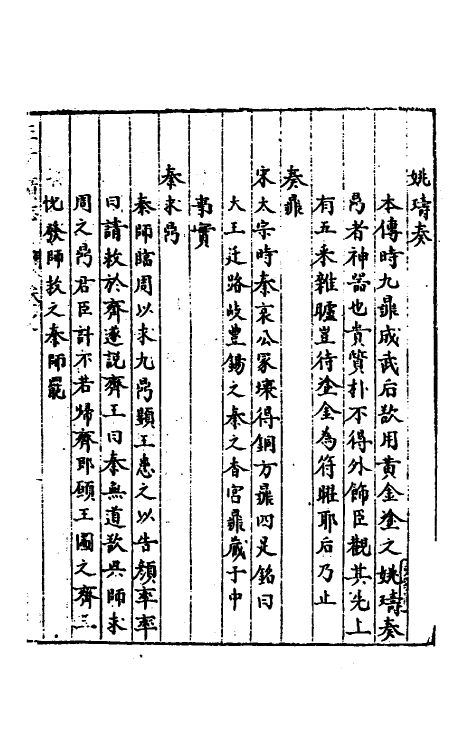 姚璹奏
本傳時九鼎成武后欲用黄金塗之姚璹奏
鼎者神器也貴質朴不得外飾臣觀其先上
有五采雜曜豈待塗金為符曜耶后乃止
奏鼎
宋太宗時秦哀公冢壞得銅方鼎四足銘曰
大王迁路岐豊錫之秦之春宫鼎藏于中
事實
秦求鼎
秦師臨周以求九鼎顯王患之以告顔率率
曰請救於齊遂説齊王曰秦無道欲興師求
周之鼎君臣計不若歸齊即願王圖之齊王
忱發師救之秦師罷